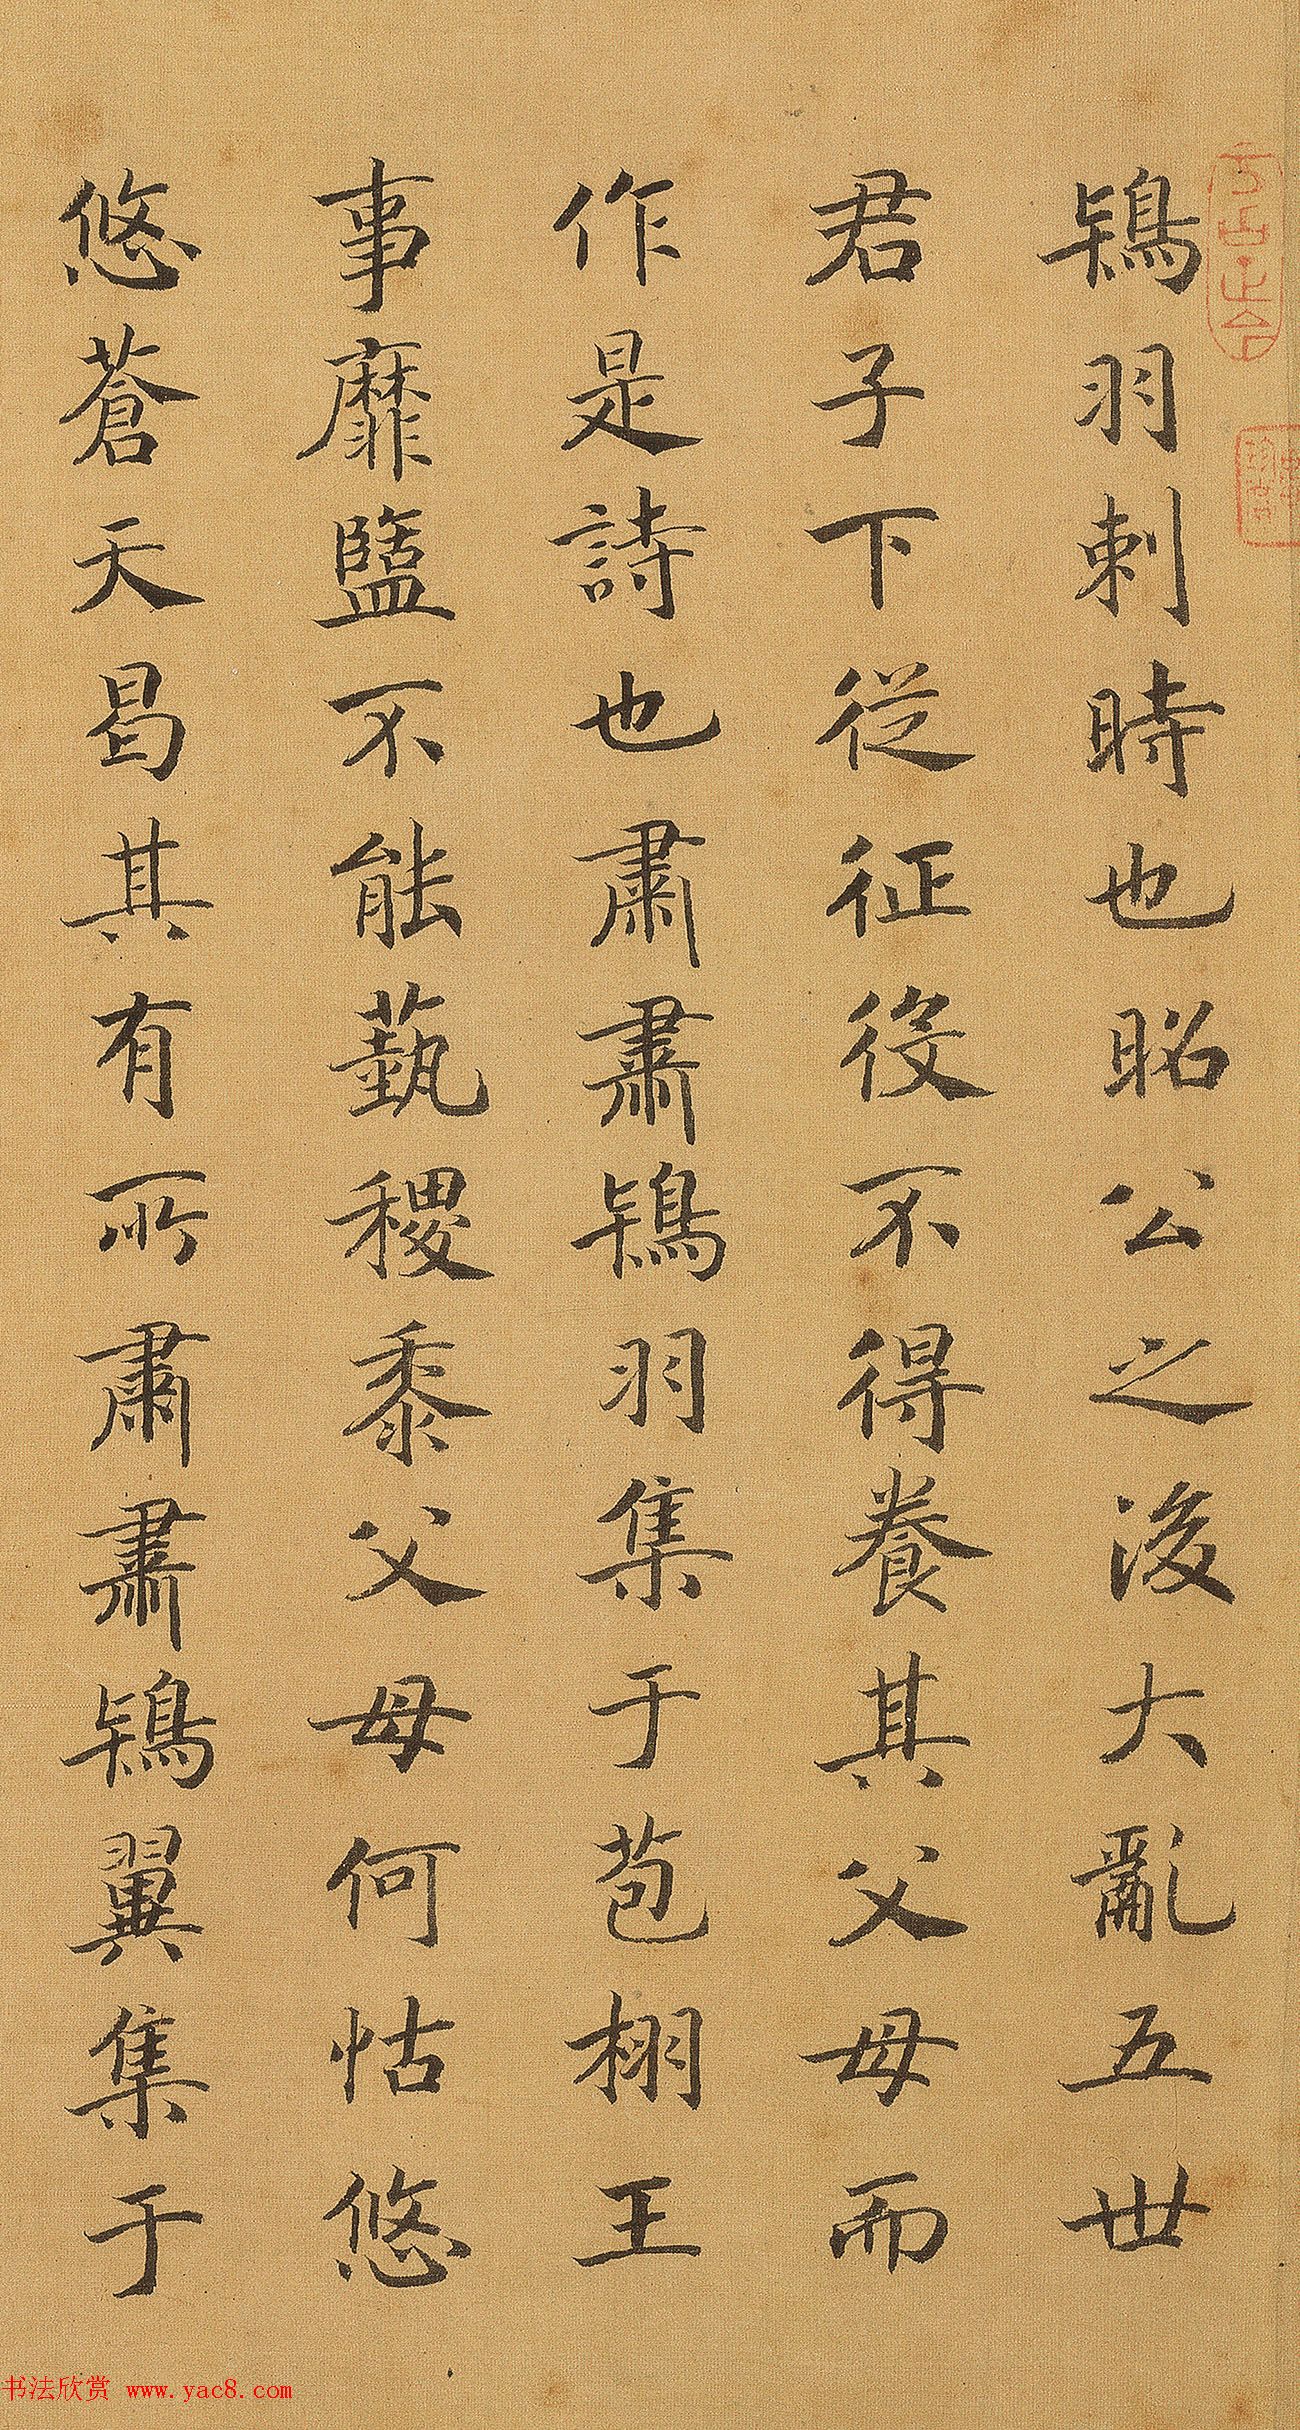 鴇羽刺時也昭公之後大亂五世
君子下從征役不得養其父母而
作是詩也肅肅鴇羽集于苞栩王
事靡盬不能蓺稷黍父母何怙悠
悠蒼天曷其有所肅肅鴇翼集于
书法欣赏 www.yac8.com